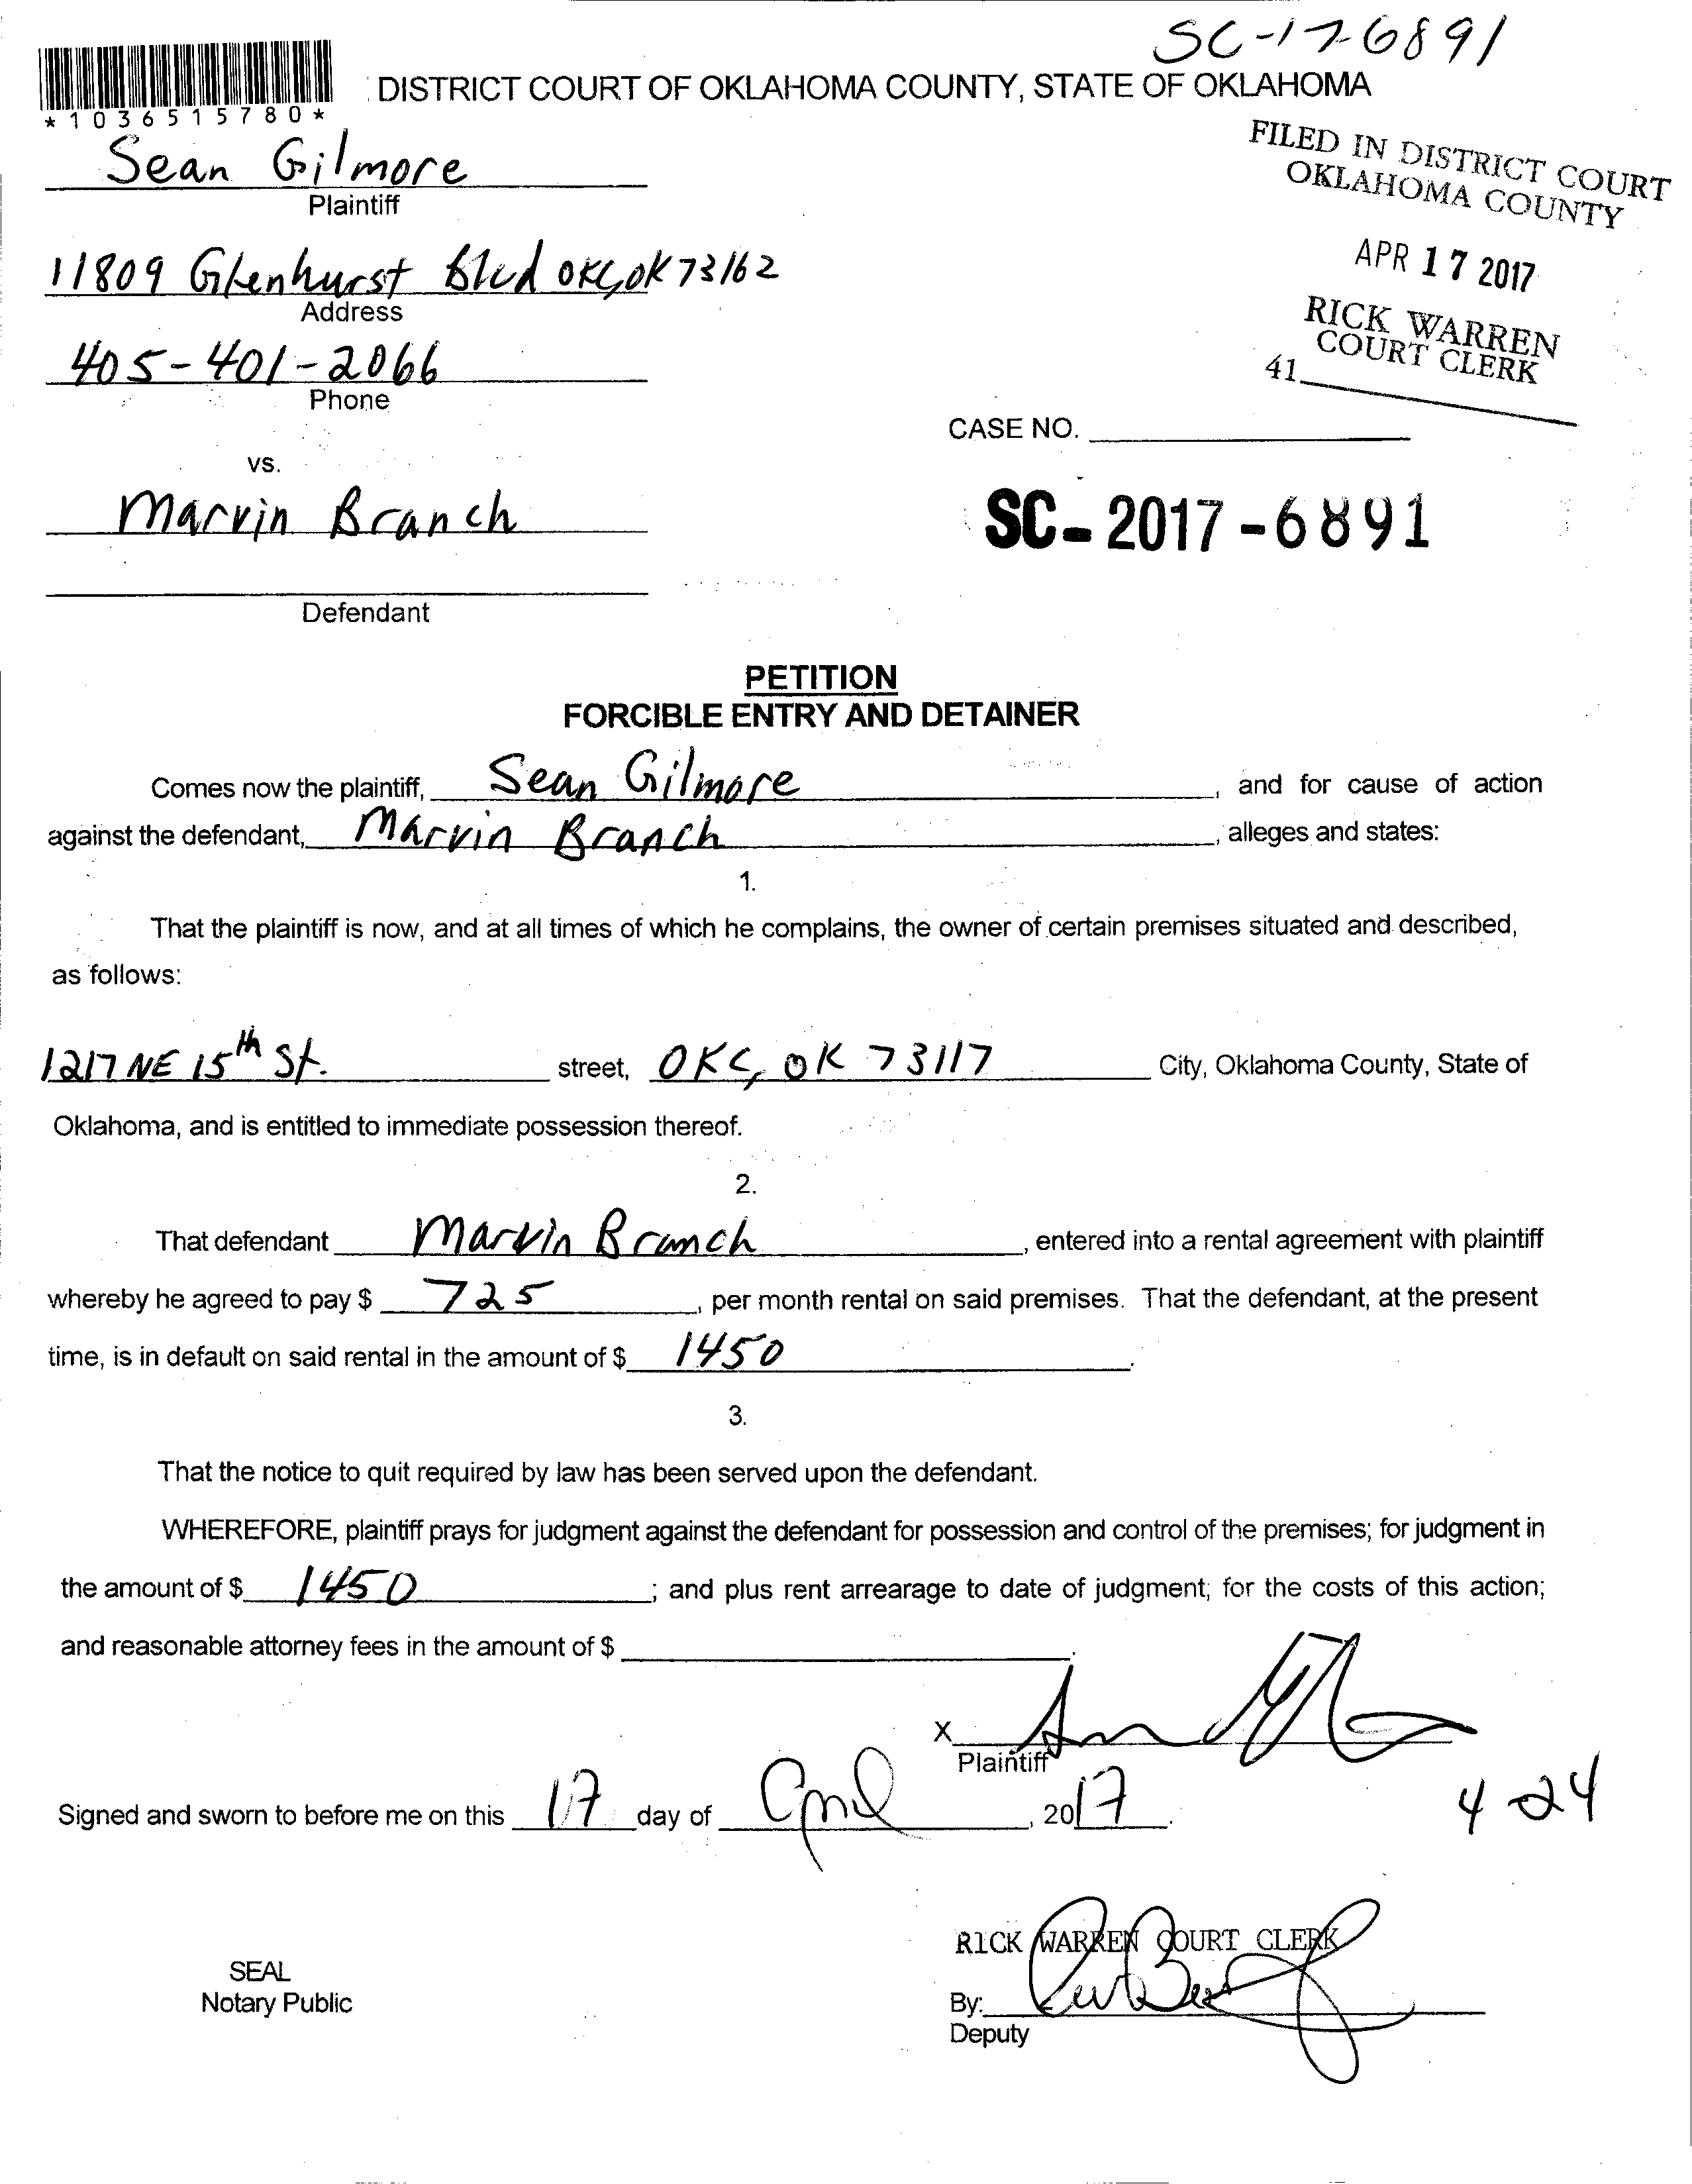 SC-17-6891
DISTRICT COURT OF OKLAHOMA COUNTY, STATE OF OKLAHOMA
*1036515780*
FILED IN DISTRICT COURT
OKLAHOMA COUNTY
Sean Gilmore
Plaintiff
APR 17 2017
11809 Glenhurst Blvd OKC, OK 73162
Address
RICK WARREN
COURT CLERK
41
405-401-2066
Phone
CASE NO.
vs.
Marvin Branch
SC-2017-6891
Defendant
PETITION
FORCIBLE ENTRY AND DETAINER
Comes now the plaintiff, Sean Gilmore, and for cause of action
against the defendant, Marvin Branch, alleges and states:
1.
That the plaintiff is now, and at all times of which he complains, the owner of certain premises situated and described,
as follows:
1217 NE 15th St. street, OKC, OK 73117 City, Oklahoma County, State of
Oklahoma, and is entitled to immediate possession thereof.
2.
That defendant Marvin Branch, entered into a rental agreement with plaintiff
whereby he agreed to pay $ 725, per month rental on said premises. That the defendant, at the present
time, is in default on said rental in the amount of $ 1450.
3.
That the notice to quit required by law has been served upon the defendant.
WHEREFORE, plaintiff prays for judgment against the defendant for possession and control of the premises; for judgment in
the amount of $ 1450; and plus rent arrearage to date of judgment; for the costs of this action;
and reasonable attorney fees in the amount of $ .
X
Plaintiff
Signed and sworn to before me on this 17 day of April, 2017.
4-24
RICK WARREN COURT CLERK
SEAL
Notary Public
By:
Deputy